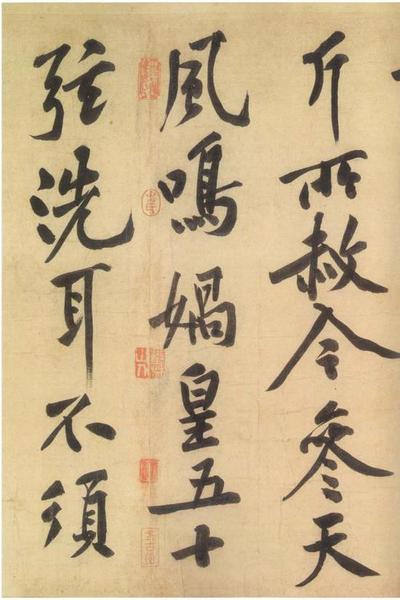 斤所赦今參天
風鳴媧皇五十
弦洗耳不須